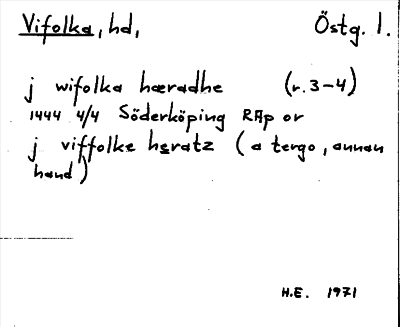 Vifolka, hd, Östg. l.
j wifolka hæradhe (r. 3-4)
1444 4/4 Söderköping RAp or
j viffolke heratz (a tergo, annan
hand)
H.E. 1971